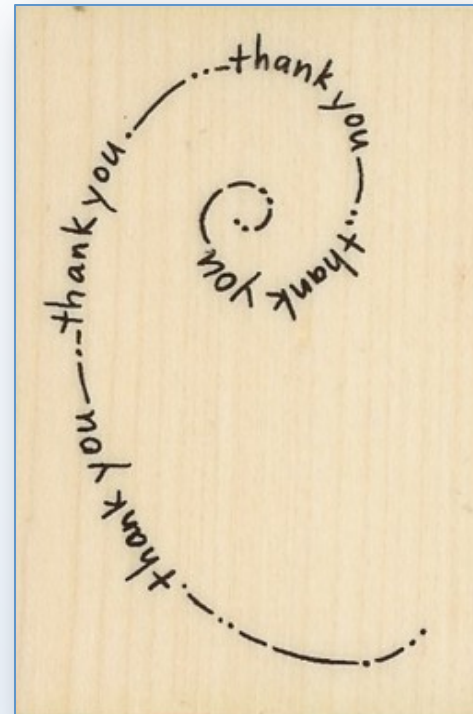 thank you
thank you
thank you
thank you